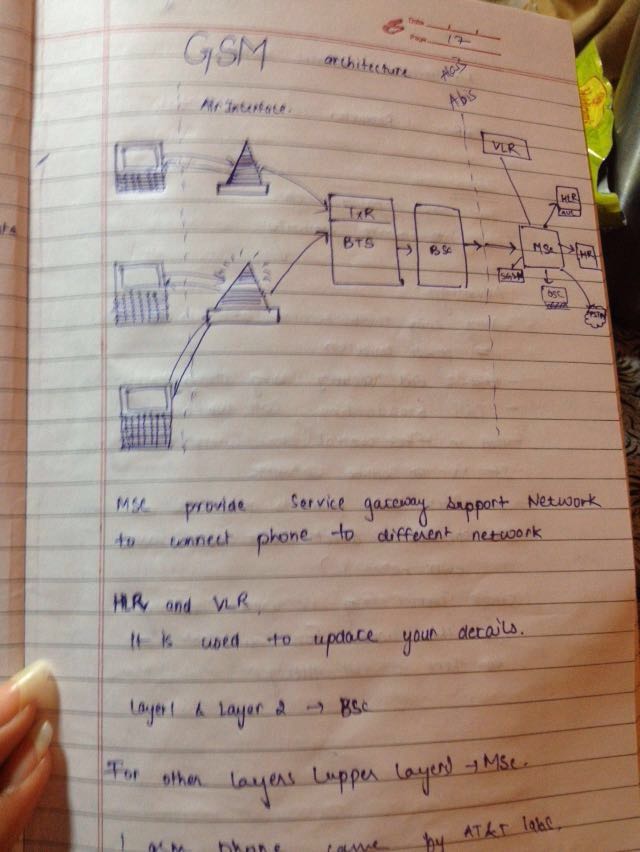 Date
Page 17
GSM architecture
Abis
Air Interface.
VLR
HLR
AUC
TxR
BTS
BSC
MSC
PSTN
MSC provide Service gateway Support Network
to connect phone to different network
HLR and VLR
It is used to update your details.
Layer1 & Layer 2 → BSC
For other layers (upper layer) → MSC.
1 GSM phone came by AT&T labs.